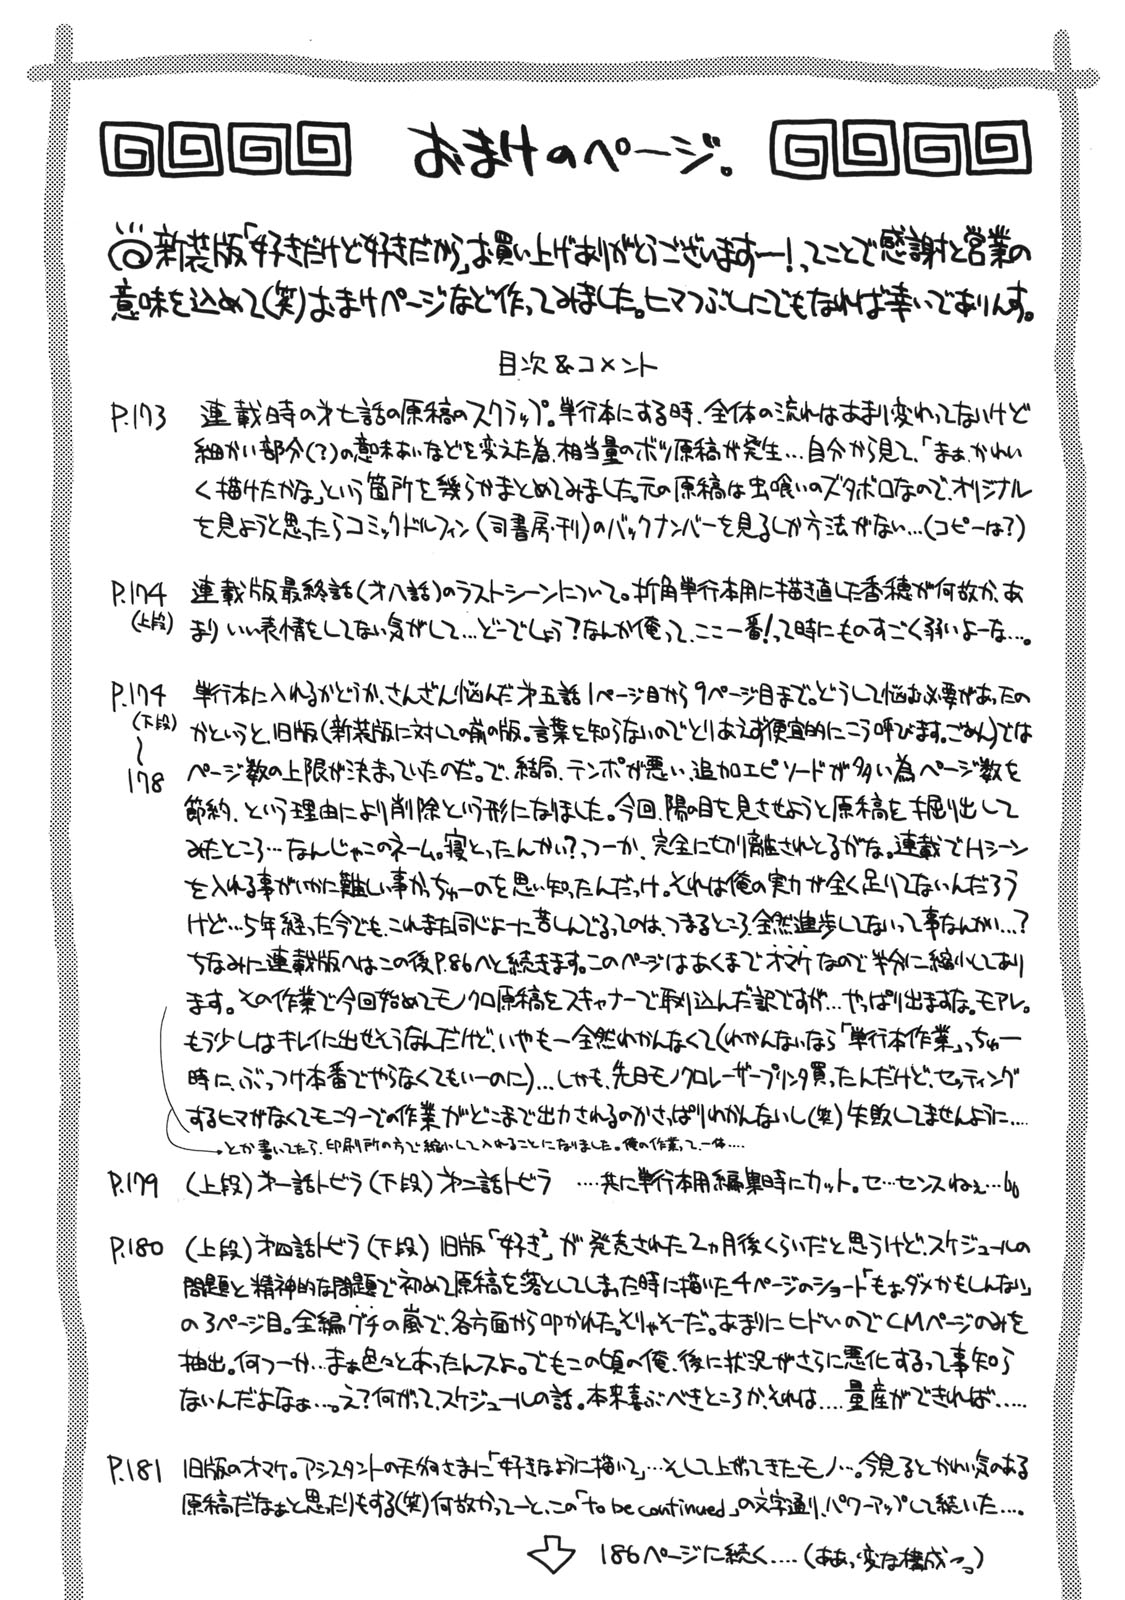 おまけのページ。
新装版「好きだけど好きだから」お買い上げありがとうございますー!ってことで感謝と営業の
意味を込めて(笑)おまけページなど作ってみました。ヒマつぶしにでもなれば幸いでありんす。
目次&コメント
P.173 連載時の才七話の原稿のスクラップ。単行本にする時、全体の流れはあまり変わってないけど
細かい部分(?)の意味あいなどを変えた為、相当量のボツ原稿が発生…自分から見て、「まぁ、かわい
く描けたかな」という箇所を幾らかまとめてみました。元の原稿は虫喰いのズタボロなので、オリジナル
を見ようと思ったらコミックドルフィン(司書房・刊)のバックナンバーを見るしか方法がない…(コピーは?)
P.174 連載版最終話(才八話)のラストシーンについて。折角単行本用に描き直した香穂が何故か、あ
(上段) まりいい表情をしてない気がして…どーでしょう?なんか俺って、ここ一番!って時にものすごく弱いよーな…。
P.174 単行本に入れるかどうか、さんざん悩んだ才五話1ページ目から9ページ目まで。どうして悩む必要があったの
(下段) かというと、旧版(新装版に対しての前の版。言葉を知らないのでとりあえず便宜的にこう呼びます。ごめん)では
〜 ページ数の上限が決まっていたのだ。で、結局、テンポが悪い、追加エピソードが多い為ページ数を
178 節約、という理由により削除という形になりました。今回、陽の目を見させようと原稿を掘り出して
みたところ…なんじゃこのネーム。寝とったんかい?っつーか、完全に切り離されとるがな。連載でHシーン
を入れる事がいかに難しい事かっちゅーのを思い知ったんだっけ。それは俺の実力が全く足りてないんだろう
けど…5年経った今でも、これまた同じよーに苦しんでるってのは、つまるところ、全然進歩してないって事なんかい…?
ちなみに連載版へはこの後P.86へと続きます。このページはあくまでオマケなので半分に縮小してあり
ます。その作業で今回始めてモノクロ原稿をスキャナーで取り込んだ訳ですが…やっぱり出ますな。モアレ。
もう少しはキレイに出せそうなんだけど、いやもー全然わかんなくて(わかんないなら「単行本作業」っちゅー
時に、ぶっつけ本番でやらなくてもいーのに)…しかも、先日モノクロレーザープリンタ買ったんだけど、セッティング
するヒマがなくてモニターでの作業がどこまで出力されるのかさっぱりわかんないし(笑)失敗してませんように….
とか書いてたら、印刷所の方で縮小して入れることになりました。俺の作業って、一体….
P.179 (上段)才一話トビラ(下段)才二話トビラ ….共に単行本用編集時にカット。セ…センスねぇ…
P.180 (上段)才四話トビラ(下段)旧版「好き²」が発売された2ヵ月後くらいだと思うけど、スケジュールの
問題と精神的な問題で初めて原稿を落としてしまった時に描いた4ページのショート「もぉダメかもしんない」
の3ページ目。全編グチの嵐で、各方面から叩かれた。そりゃそーだ。あまりにヒドいのでCMページのみを
抽出。何つーか…まぁ色々とあったんスよ。でもこの頃の俺、後に状況がさらに悪化するって事知ら
ないんだよなぁ…。え?何がって、スケジュールの話。本来喜ぶべきところか、それは….量産ができれば…..
P.181 旧版のオマケ。アシスタントの天狗さまに「好きなように描いて」…そして上がってきたモノ…。今見るとかわい気のある
原稿だなぁと思ったりもする(笑)何故かってーと、この「to be continued」の文字通り、パワーアップして続いた….
186ページに続く….(ああっ変な構成っっ)